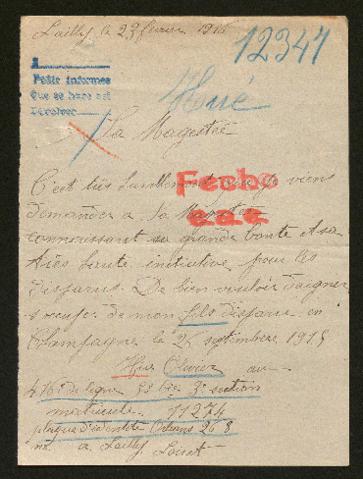 Lailly le 23 fevrier 1916
12347
A
Pidite informes
que se hace est
Devolver
Hué
Sa Magestée
Fecho
C'est très humblement que je viens
demander a Sa Majestée
connaissant sa grande bonté et sa
très haute initiative pour les
disparus. De bien vouloir daigner
s'occuper de mon fils disparu en
Champagne le 25 septembre 1915
Hué Olivier au
4 de ligne 3e section
matricule 11274
plaque d'identité Orléans
a Lailly Loiret